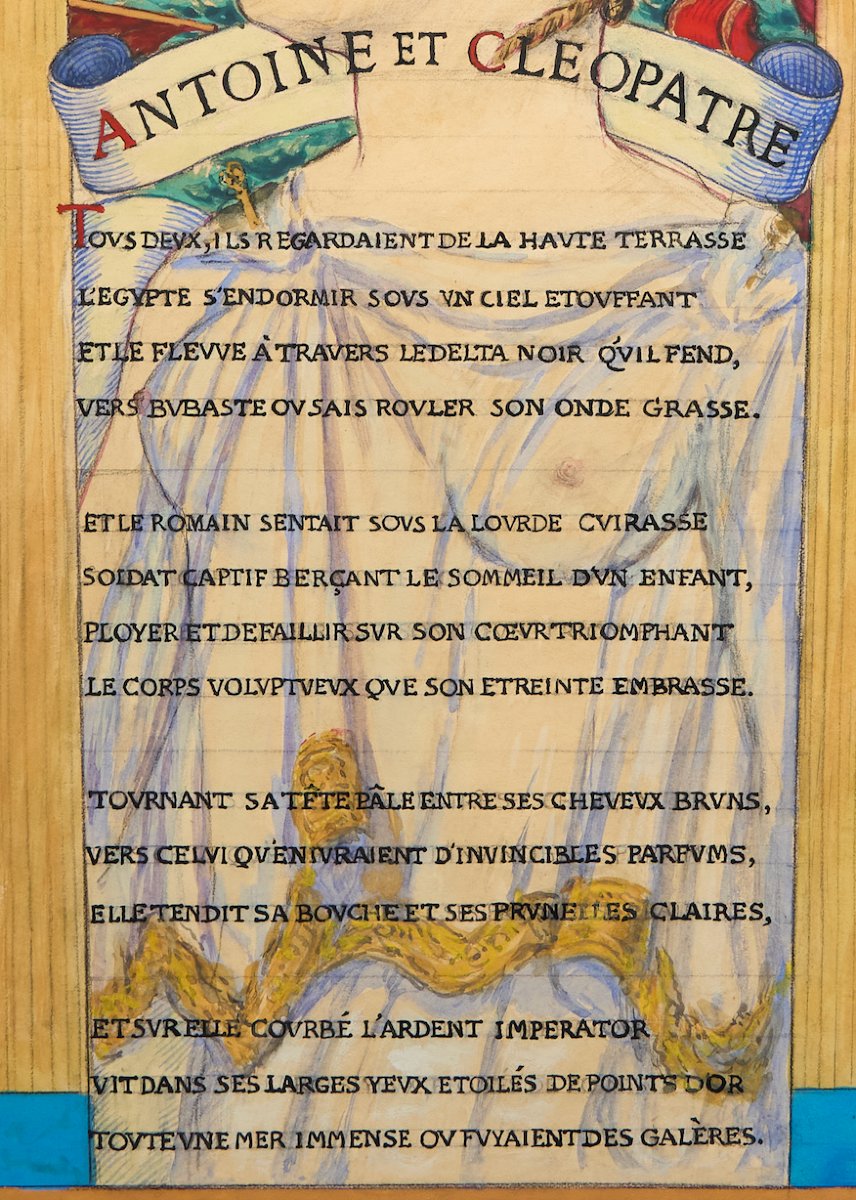 ANTOINE ET CLEOPATRE
TOVS DEVX, ILS REGARDAIENT DE LA HAVTE TERRASSE
L'EGYPTE S'ENDORMIR SOVS VN CIEL ETOVFFANT
ET LE FLEVVE À TRAVERS LE DELTA NOIR QV'IL FEND,
VERS BVBASTE OV SAIS ROVLER SON ONDE GRASSE.
ET LE ROMAIN SENTAIT SOVS LA LOVRDE CVIRASSE
SOLDAT CAPTIF BERÇANT LE SOMMEIL D'VN ENFANT,
PLOYER ET DEFAILLIR SVR SON CŒVR TRIOMPHANT
LE CORPS VOLVPTVEVX QVE SON ETREINTE EMBRASSE.
TOVRNANT SA TÊTE PÂLE ENTRE SES CHEVEVX BRVNS,
VERS CELVI QV'ENIVRAIENT D'INVINCIBLES PARFVMS,
ELLE TENDIT SA BOVCHE ET SES PRVNELLES CLAIRES,
ET SVR ELLE COVRBÉ L'ARDENT IMPERATOR
VIT DANS SES LARGES YEVX ETOILÉS DE POINTS D'OR
TOVTE VNE MER IMMENSE OV FVYAIENT DES GALÈRES.